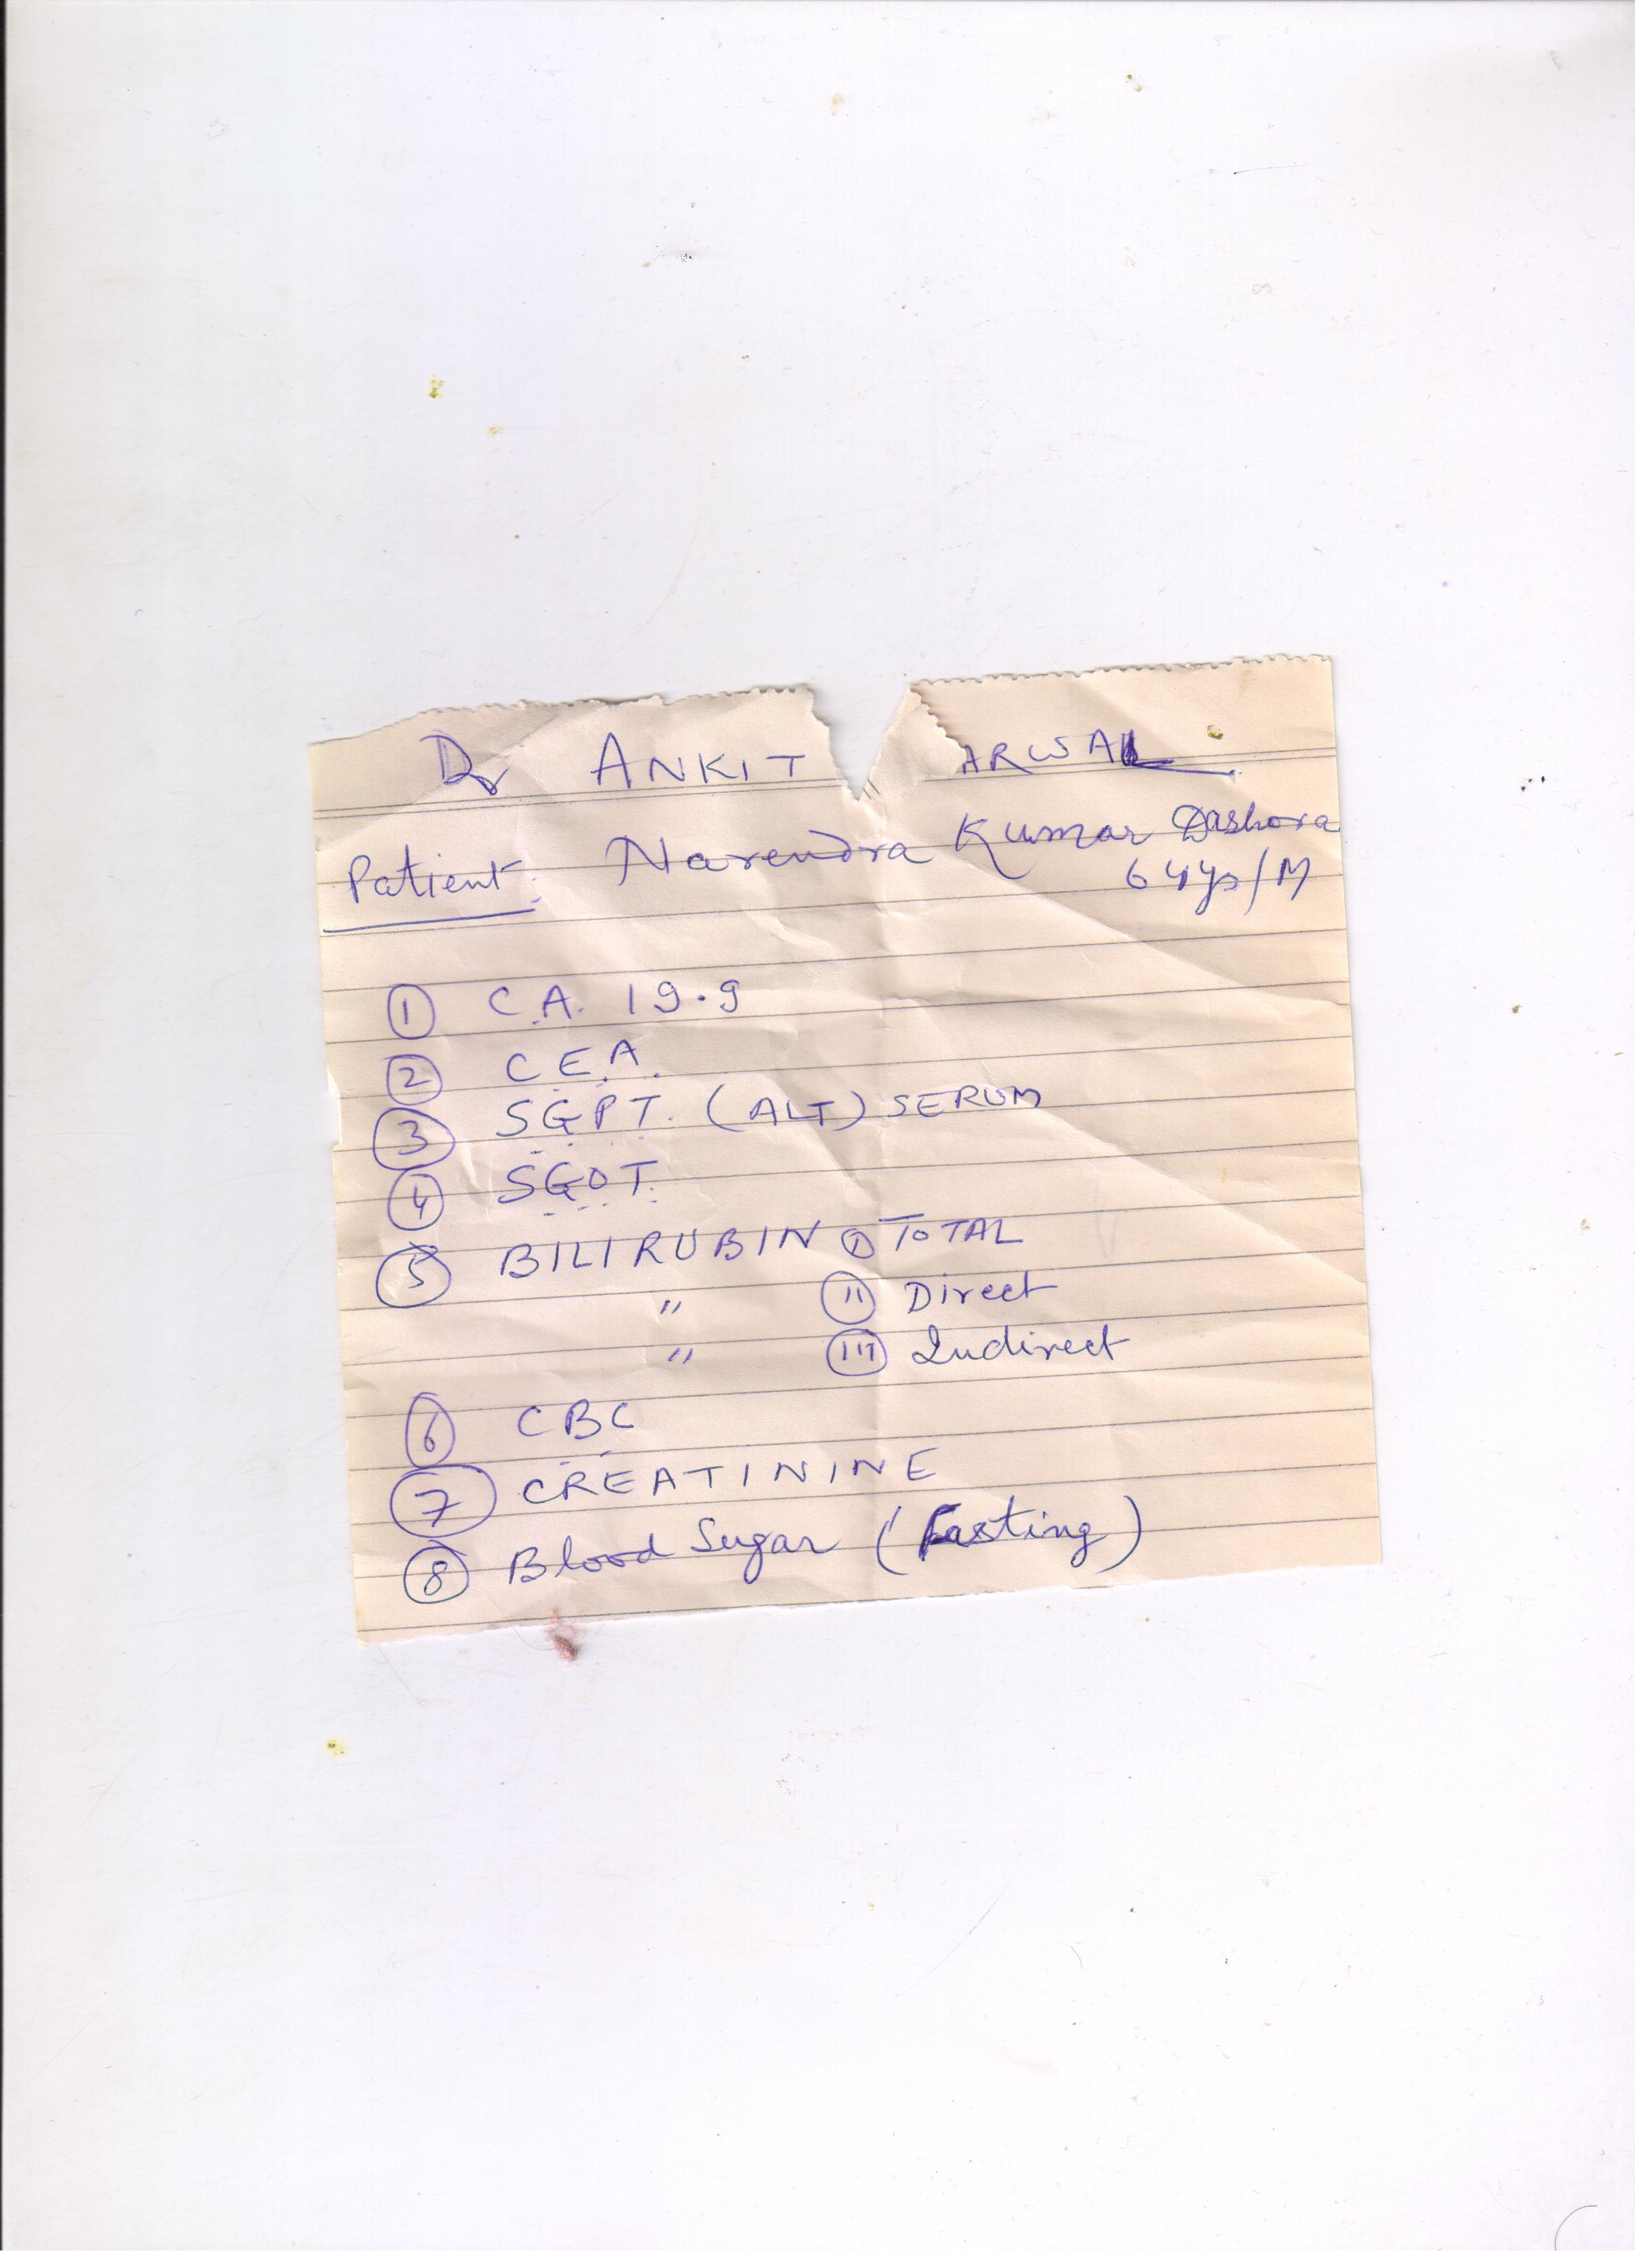 Dr ANKIT ARWAL
Patient: Narendra Kumar Dashora
64ys/M
① C.A. 19.9
② C.E.A.
③ S.G.P.T. (ALT) SERUM
④ S.G.O.T.
⑤ BILIRUBIN ① TOTAL
" (II) Direct
" (III) Indirect
⑥ C.B.C
⑦ CREATININE
⑧ Blood Sugar (Fasting)